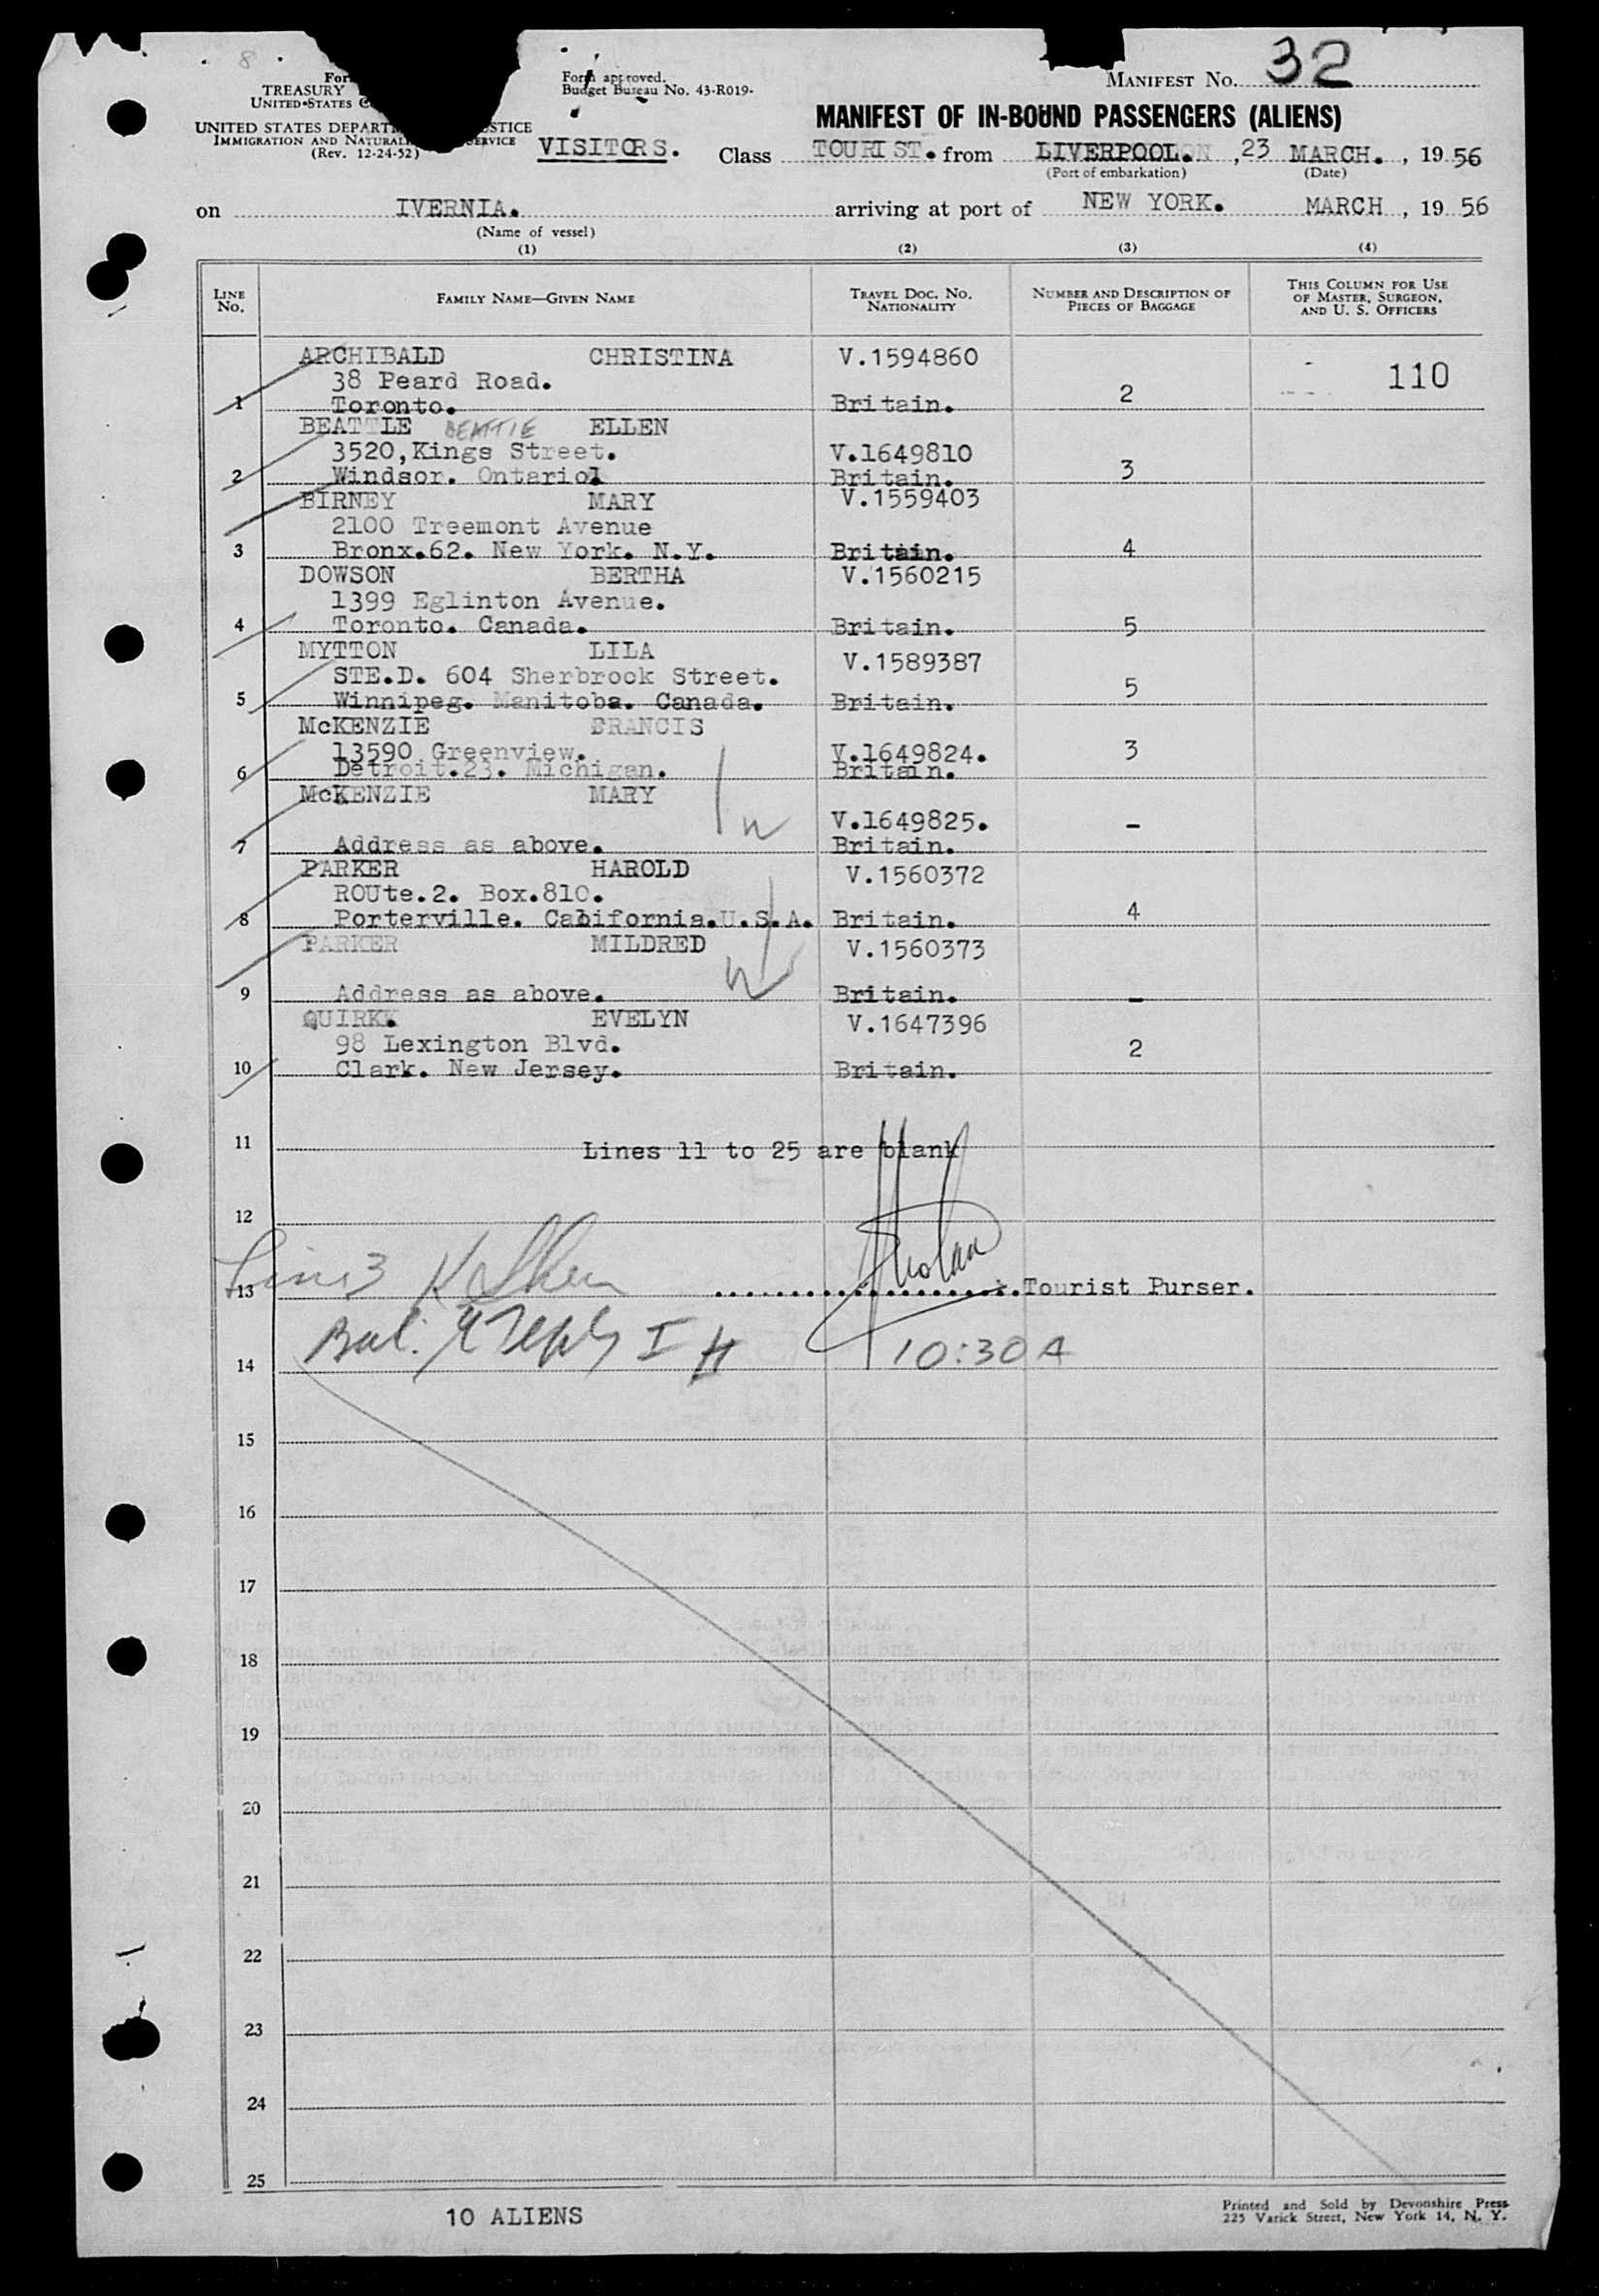 8
Form approved.
Budget Bureau No. 43-R019-
MANIFEST NO. 32
TREASURY
UNITED STATES
UNITED STATES DEPARTM STICE
IMMIGRATION AND NATURAL SERVICE
(Rev. 12-24-52)
MANIFEST OF IN-BOUND PASSENGERS (ALIENS)
VISITORS. Class TOURIST. from LIVERPOOL. , 23 MARCH. , 19 56
(Port of embarkation) (Date)
on IVERNIA. arriving at port of NEW YORK. MARCH , 19 56
(Name of vessel)
(1) (2) (3) (4)
LINE NO. FAMILY NAME—GIVEN NAME TRAVEL DOC. NO. NATIONALITY NUMBER AND DESCRIPTION OF PIECES OF BAGGAGE THIS COLUMN FOR USE OF MASTER, SURGEON, AND U. S. OFFICERS
ARCHIBALD CHRISTINA V.1594860 110
38 Peard Road. 2
1 Toronto. Britain.
BEATTLE BEATTIE ELLEN
3520,Kings Street. V.1649810
2 Windsor. Ontario. Britain. 3
BIRNEY MARY V.1559403
2100 Treemont Avenue
3 Bronx.62. New York. N.Y. Britain. 4
DOWSON BERTHA V.1560215
1399 Eglinton Avenue.
4 Toronto. Canada. Britain. 5
MYTTON LILA V.1589387
STE.D. 604 Sherbrook Street. 5
5 Winnipeg. Manitoba. Canada. Britain.
McKENZIE FRANCIS
13590 Greenview. V.1649824. 3
6 Detroit.23. Michigan. Britain.
McKENZIE MARY
V.1649825. -
7 Address as above. Britain.
PARKER HAROLD V.1560372
ROUte.2. Box.810. 4
8 Porterville. California.U.S.A. Britain.
PARKER MILDRED V.1560373
9 Address as above. Britain. -
QUIRK. EVELYN V.1647396
98 Lexington Blvd. 2
10 Clark. New Jersey. Britain.
11 Lines 11 to 25 are blank
12
Line 3
13 ....................Tourist Purser.
Bal.
10:30 A
14
15
16
17
18
19
20
21
22
23
24
25
10 ALIENS
Printed and Sold by Devonshire Press
225 Varick Street, New York 14, N. Y.